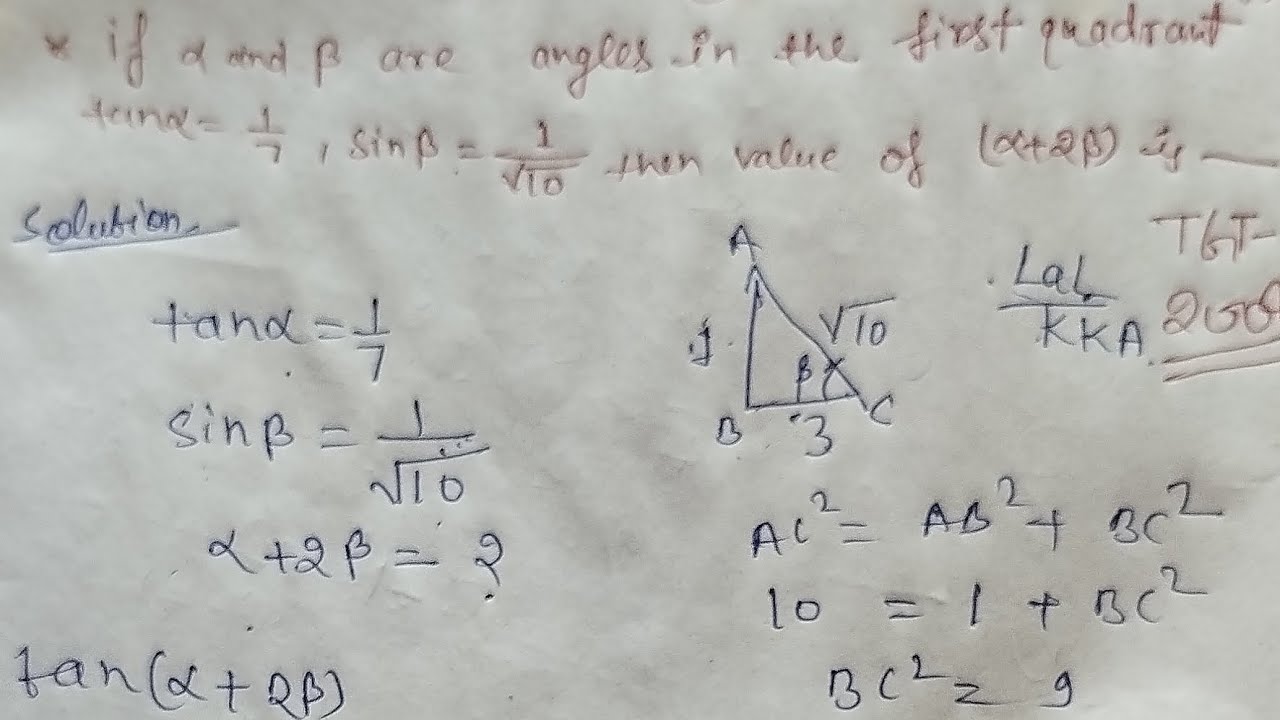 * if α and β are angles in the first quadrant
tanα = 1/7 , sinβ = 1/√10 then value of (α+2β) is —
Solution
TGT-
200
LaL
KKA.
tanα = 1/7
sinβ = 1/√10
α + 2β = ?
tan(α + 2β)
A
1
√10
β
B
3
C
AC² = AB² + BC²
10 = 1 + BC²
BC² = 9